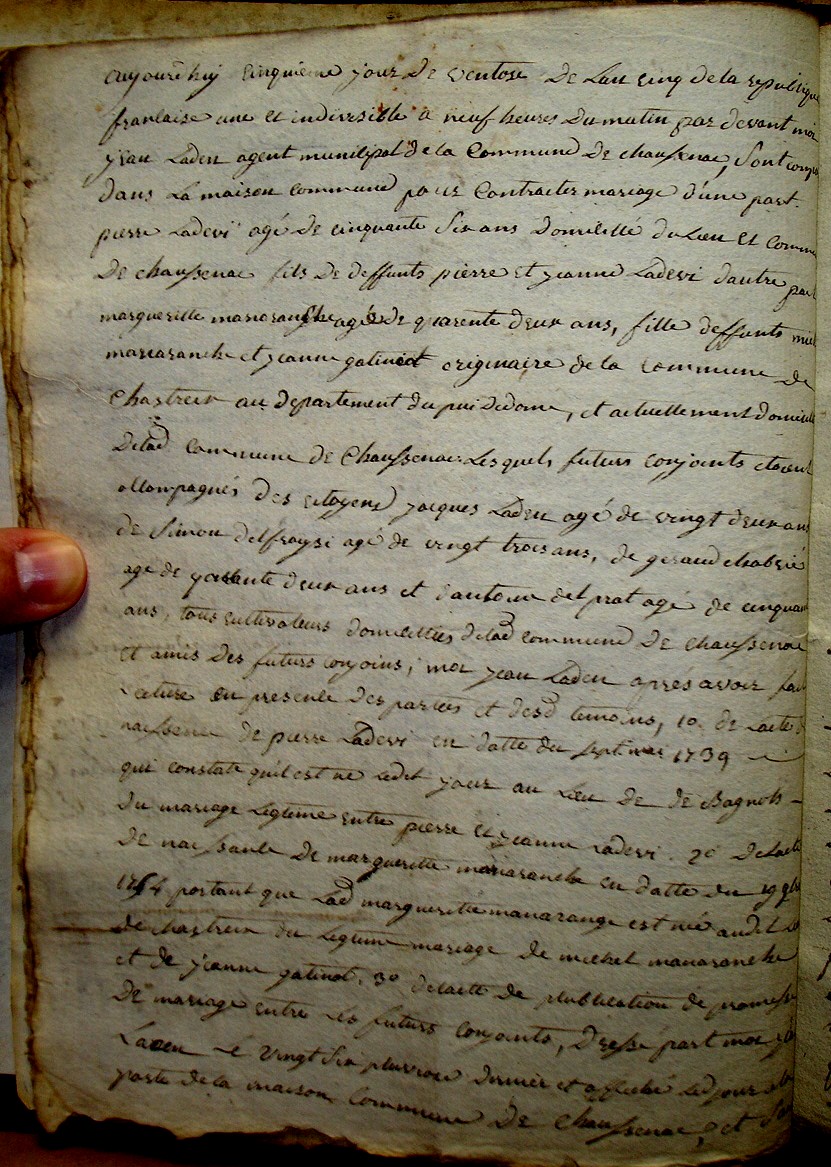 aujourdhuy cinquieme jour de ventose de Lan cinq de la republique
francaise une et indivisible a neuf heures du matin par devant moi
jean Laden agent municipal de la Commune de chaussenac, sont comp
dans La maison commune pour Contracter mariage d'une part
pierre Ladevi agé de cinquante six ans domicillié du Lieu et commu
De chaussenac fils de deffunts pierre et jeanne Ladevi dautre part
margueritte manaranche agée de quarente deux ans, fille deffunts mich
manaranche et jeanne gatiniot originaire de la Commune de
Chastreix au departement du pui de dome, et actuellement domicill
de lad commune de Chaussenac. Lesquels futurs conjoints etoient
accompagnés des citoyens jacques Laden agé de vingt deux ans
de Simon delfraysi agé de vingt trois ans, de geraud chabrié
agé de deux ans et dantoine delprat agé de cinquan
ans, tous cultivateurs domicilliés de lad commune De chaussenac
et amis des futurs conjoins, moi jean Laden après avoir fai
Lecture en presence des parties et desd temoins, 1o de Lacte d
naissence de pierre Ladevi en datte du sept mai 1739
qui constate quil est né Ledit jour au Lieu de de Bagnols
du mariage Legitime entre pierre et jeanne Ladevi. 2o de Lacte
De naissance De margueritte manaranche en datte du 19 9bre
1754 portant que Lad margueritte manarange est née audit L
de chastreix du Legitime mariage de michel manaranche
et de jeanne gatinot. 3o de lacte de publication de promesse
De mariage entre Les futurs conjoints, Dressé part moi j
Laden Le vingt six pluviose dernier et affiché Led jour a la
porte de la maison Commune De Chaussenac, et